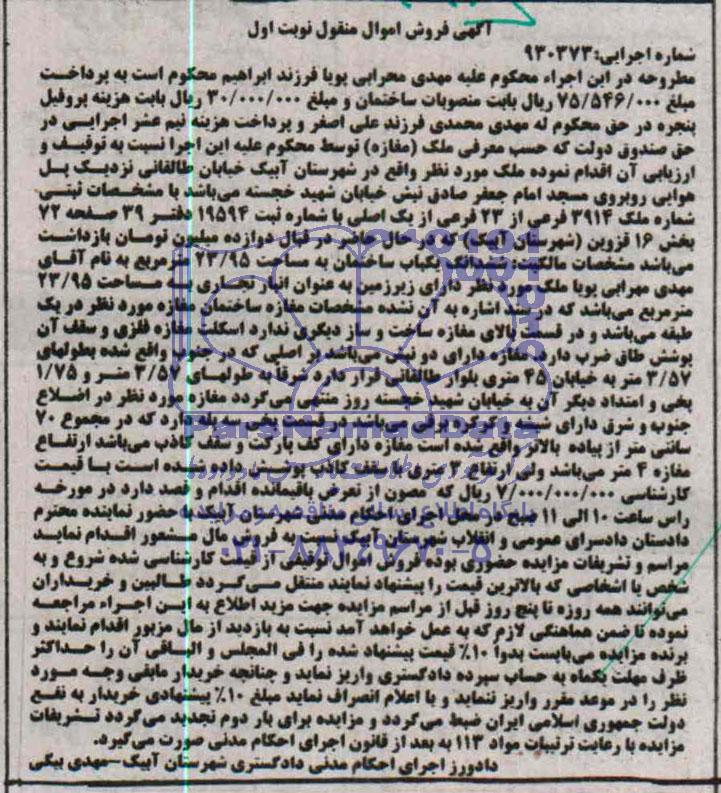 آگهی فروش اموال منقول نوبت اول
شماره اجرایی:۹۳۰۳۷۳
مطروحه در این اجراء محکوم علیه مهدی محرابی پویا فرزند ابراهیم محکوم است به پرداخت
مبلغ ۷۵/۵۴۶/۰۰۰ ریال بابت منصوبات ساختمان و مبلغ ۳۰/۰۰۰/۰۰۰ ریال بابت هزینه پروفیل
پنجره در حق محکوم له مهدی محمدی فرزند علی اصغر و پرداخت هزینه نیم عشر اجرایی در
حق صندوق دولت که حسب معرفی ملک (مغازه) توسط محکوم علیه این اجرا نسبت به توقیف و
ارزیابی آن اقدام نموده ملک مورد نظر واقع در شهرستان آبیک خیابان طالقانی نزدیک پل
هوایی روبروی مسجد امام جعفر صادق نبش خیابان شهید خجسته می‌باشد با مشخصات ثبتی
شماره ملک ۳۹۱۴ فرعی از ۲۳ فرعی از یک اصلی با شماره ثبت ۱۹۵۹۴ دفتر ۳۹ صفحه ۷۲
بخش ۱۶ قزوین (شهرستان آبیک) که در حال حاضر در قبال دوازده میلیون تومان بازداشت
می‌باشد مشخصات مالکیت: ششدانگ یکباب ساختمان به مساحت ۲۳/۹۵ متر مربع به نام آقای
مهدی مهرابی پویا ملک مورد نظر دارای زیرزمین به عنوان انبار تجاری به مساحت ۲۳/۹۵
مترمربع می‌باشد که در سند اشاره به آن نشده مشخصات مغازه ساختمان مغازه مورد نظر در یک
طبقه می‌باشد و در قسمت بالای مغازه ساخت و ساز دیگری ندارد اسکلت مغازه فلزی و سقف آن
پوشش طاق ضرب دارد. مغازه دارای دو نبش می‌باشد بر اصلی که در جنوب واقع شده بطولهای
۳/۵۷ متر به خیابان ۴۵ متری بلوار طالقانی قرار دارد شرقا به طولهای ۳/۵۷ متر و ۱/۷۵
پخی و امتداد دیگر آن به خیابان شهید خجسته روز منتهی می‌گردد مغازه مورد نظر در اضلاع
جنوبه و شرق دارای شیشه و کرکره برقی می‌باشد در قسمت پخی سه پله دارد که در مجموع ۷۰
سانتی متر از پیاده بالاتر واقع شده است مغازه دارای کف پارکت و سقف کاذب می‌باشد ارتفاع
مغازه ۴ متر می‌باشد ولی ارتفاع ۳ متری با سقف کاذب پوشش داده شده است با قیمت
کارشناسی ۷/۰۰۰/۰۰۰/۰۰۰ ریال که مصون از تعرض باقیمانده اقدام و قصد دارد در مورخه
راس ساعت ۱۰ الی ۱۱ صبح در محل اجرای احکام مدنی شهرستان آبیک با حضور نماینده محترم
دادستان دادسرای عمومی و انقلاب شهرستان آبیک نسبت به فروش مال مشعور اقدام نماید
مراسم و تشریفات مزایده حضوری بوده فروش اموال توقیفی از قیمت کارشناسی شده شروع و به
شخص یا اشخاصی که بالاترین قیمت را پیشنهاد نمایند منتقل می‌گردد طالبین و خریداران
می‌توانند همه روزه تا پنج روز قبل از مراسم مزایده جهت مزید اطلاع به این اجراء مراجعه
نموده تا ضمن هماهنگی لازم که به عمل خواهد آمد نسبت به بازدید از مال مزبور اقدام نمایند و
برنده مزایده می‌بایست بدوا ۱۰٪ قیمت پیشنهاد شده را فی المجلس و الباقی آن را حداکثر
ظرف مهلت یکماه به حساب سپرده دادگستری واریز نماید و چنانچه خریدار مابقی وجه مورد
نظر را در موعد مقرر واریز ننماید و یا اعلام انصراف نماید مبلغ ۱۰٪ پیشنهادی خریدار به نفع
دولت جمهوری اسلامی ایران ضبط می‌گردد و مزایده برای بار دوم تجدید می‌گردد تشریفات
مزایده با رعایت ترتیبات مواد ۱۱۳ به بعد از قانون اجرای احکام مدنی صورت می‌گیرد.
دادورز اجرای احکام مدنی دادگستری شهرستان آبیک-مهدی بیگی
ParsNamadData
پایگاه اطلاع رسانی مناقصه و مزایده
۰۲۱-۸۸۳۴۹۶۷۰-۵